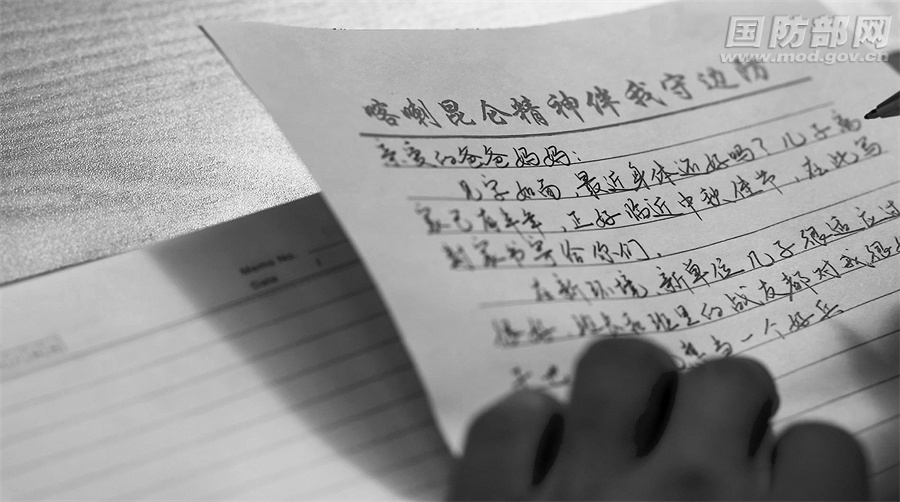 国防部网
www.mod.gov.cn
喀喇昆仑精神伴我守边防
亲爱的爸爸妈妈:
见字如面,最近身体还好吗?儿子离
家已有半年,正好临近中秋佳节,在此写
封家书寄给你们.
在新环境、新单位儿子很适应过
很好,班长和班里的战友都对我很
当一个好兵
Memo No.
Date